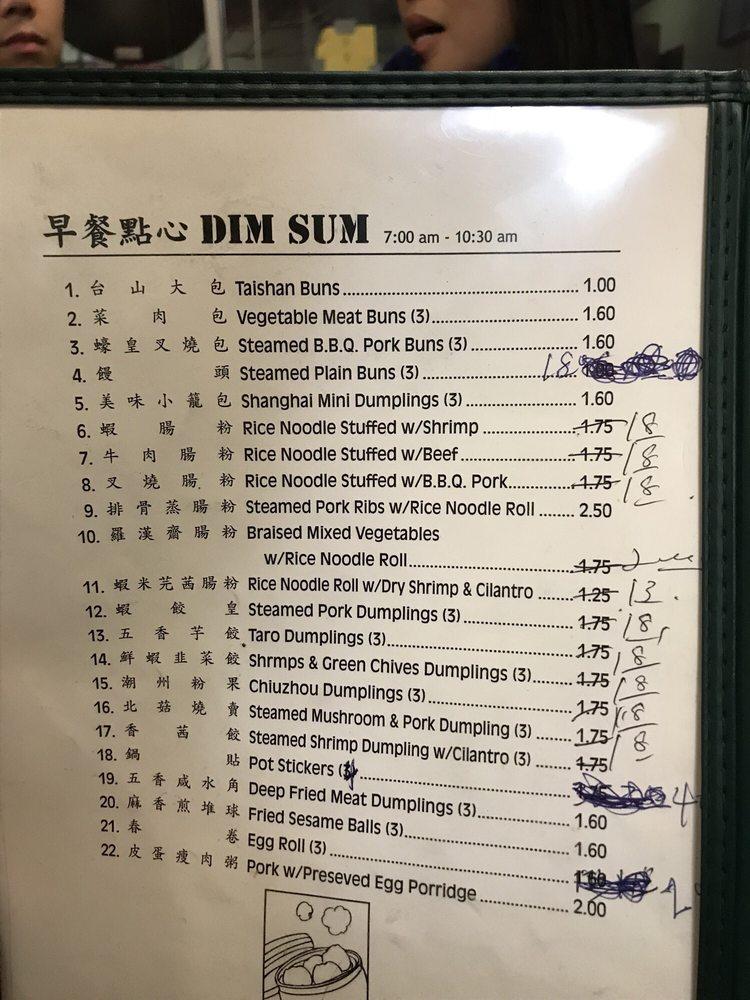 早餐點心 DIM SUM 7:00 am - 10:30 am
1. 台山大包 Taishan Buns 1.00
2. 菜肉包 Vegetable Meat Buns (3) 1.60
3. 蠔皇叉燒包 Steamed B.B.Q. Pork Buns (3) 1.60
4. 饅頭 Steamed Plain Buns (3) 18
5. 美味小籠包 Shanghai Mini Dumplings (3) 1.60
6. 蝦腸粉 Rice Noodle Stuffed w/Shrimp 1.75 18
7. 牛肉腸粉 Rice Noodle Stuffed w/Beef 1.75 18
8. 叉燒腸粉 Rice Noodle Stuffed w/B.B.Q. Pork 1.75 18
9. 排骨蒸腸粉 Steamed Pork Ribs w/Rice Noodle Roll 2.50
10. 羅漢齋腸粉 Braised Mixed Vegetables
w/Rice Noodle Roll 1.75
11. 蝦米芫茜腸粉 Rice Noodle Roll w/Dry Shrimp & Cilantro 1.25 13
12. 蝦餃皇 Steamed Pork Dumplings (3) 1.75 18
13. 五香芋餃 Taro Dumplings (3) 1.75 18
14. 鮮蝦韭菜餃 Shrmps & Green Chives Dumplings (3) 1.75 18
15. 潮州粉果 Chiuzhou Dumplings (3) 1.75 1.8
16. 北菇燒賣 Steamed Mushroom & Pork Dumpling (3) 1.75 18
17. 香茜餃 Steamed Shrimp Dumpling w/Cilantro (3) 1.75
18. 鍋貼 Pot Stickers 4
19. 五香咸水角 Deep Fried Meat Dumplings (3) 1.60
20. 麻香煎堆球 Fried Sesame Balls (3) 1.60
21. 春卷 Egg Roll (3)
22. 皮蛋瘦肉粥 Pork w/Preseved Egg Porridge 2.00